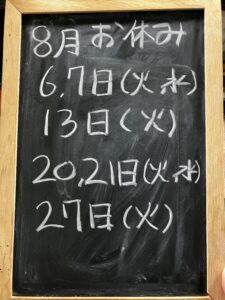 8月 お休み
6,7日(火,水)
13日(火)
20,21日(火,水)
27日(火)